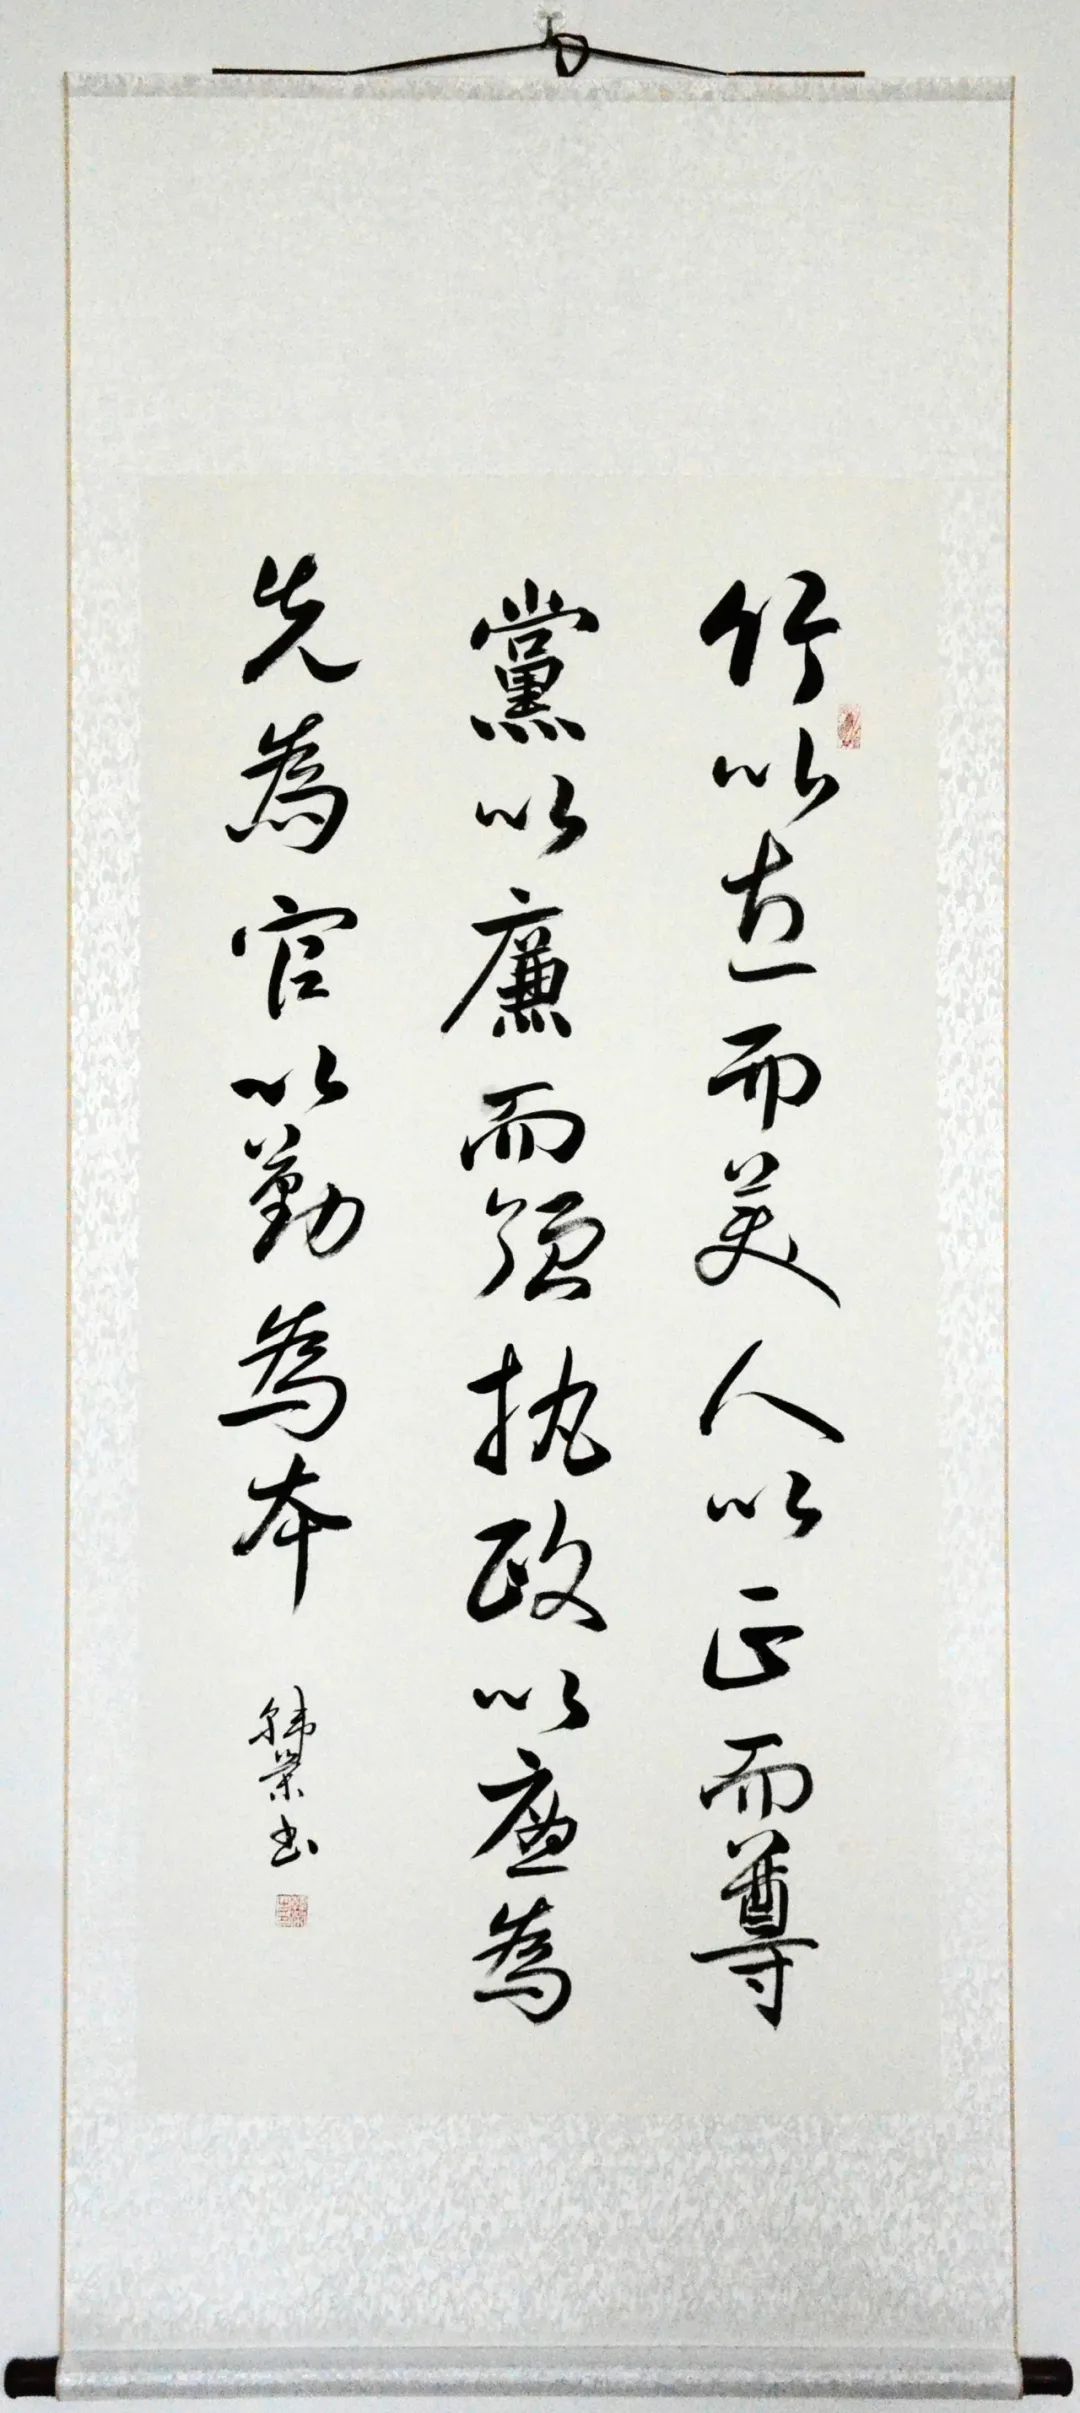 竹以直而美人以正而尊
黨以廉而强执政以廉為
先為官以勤為本
韩荣书